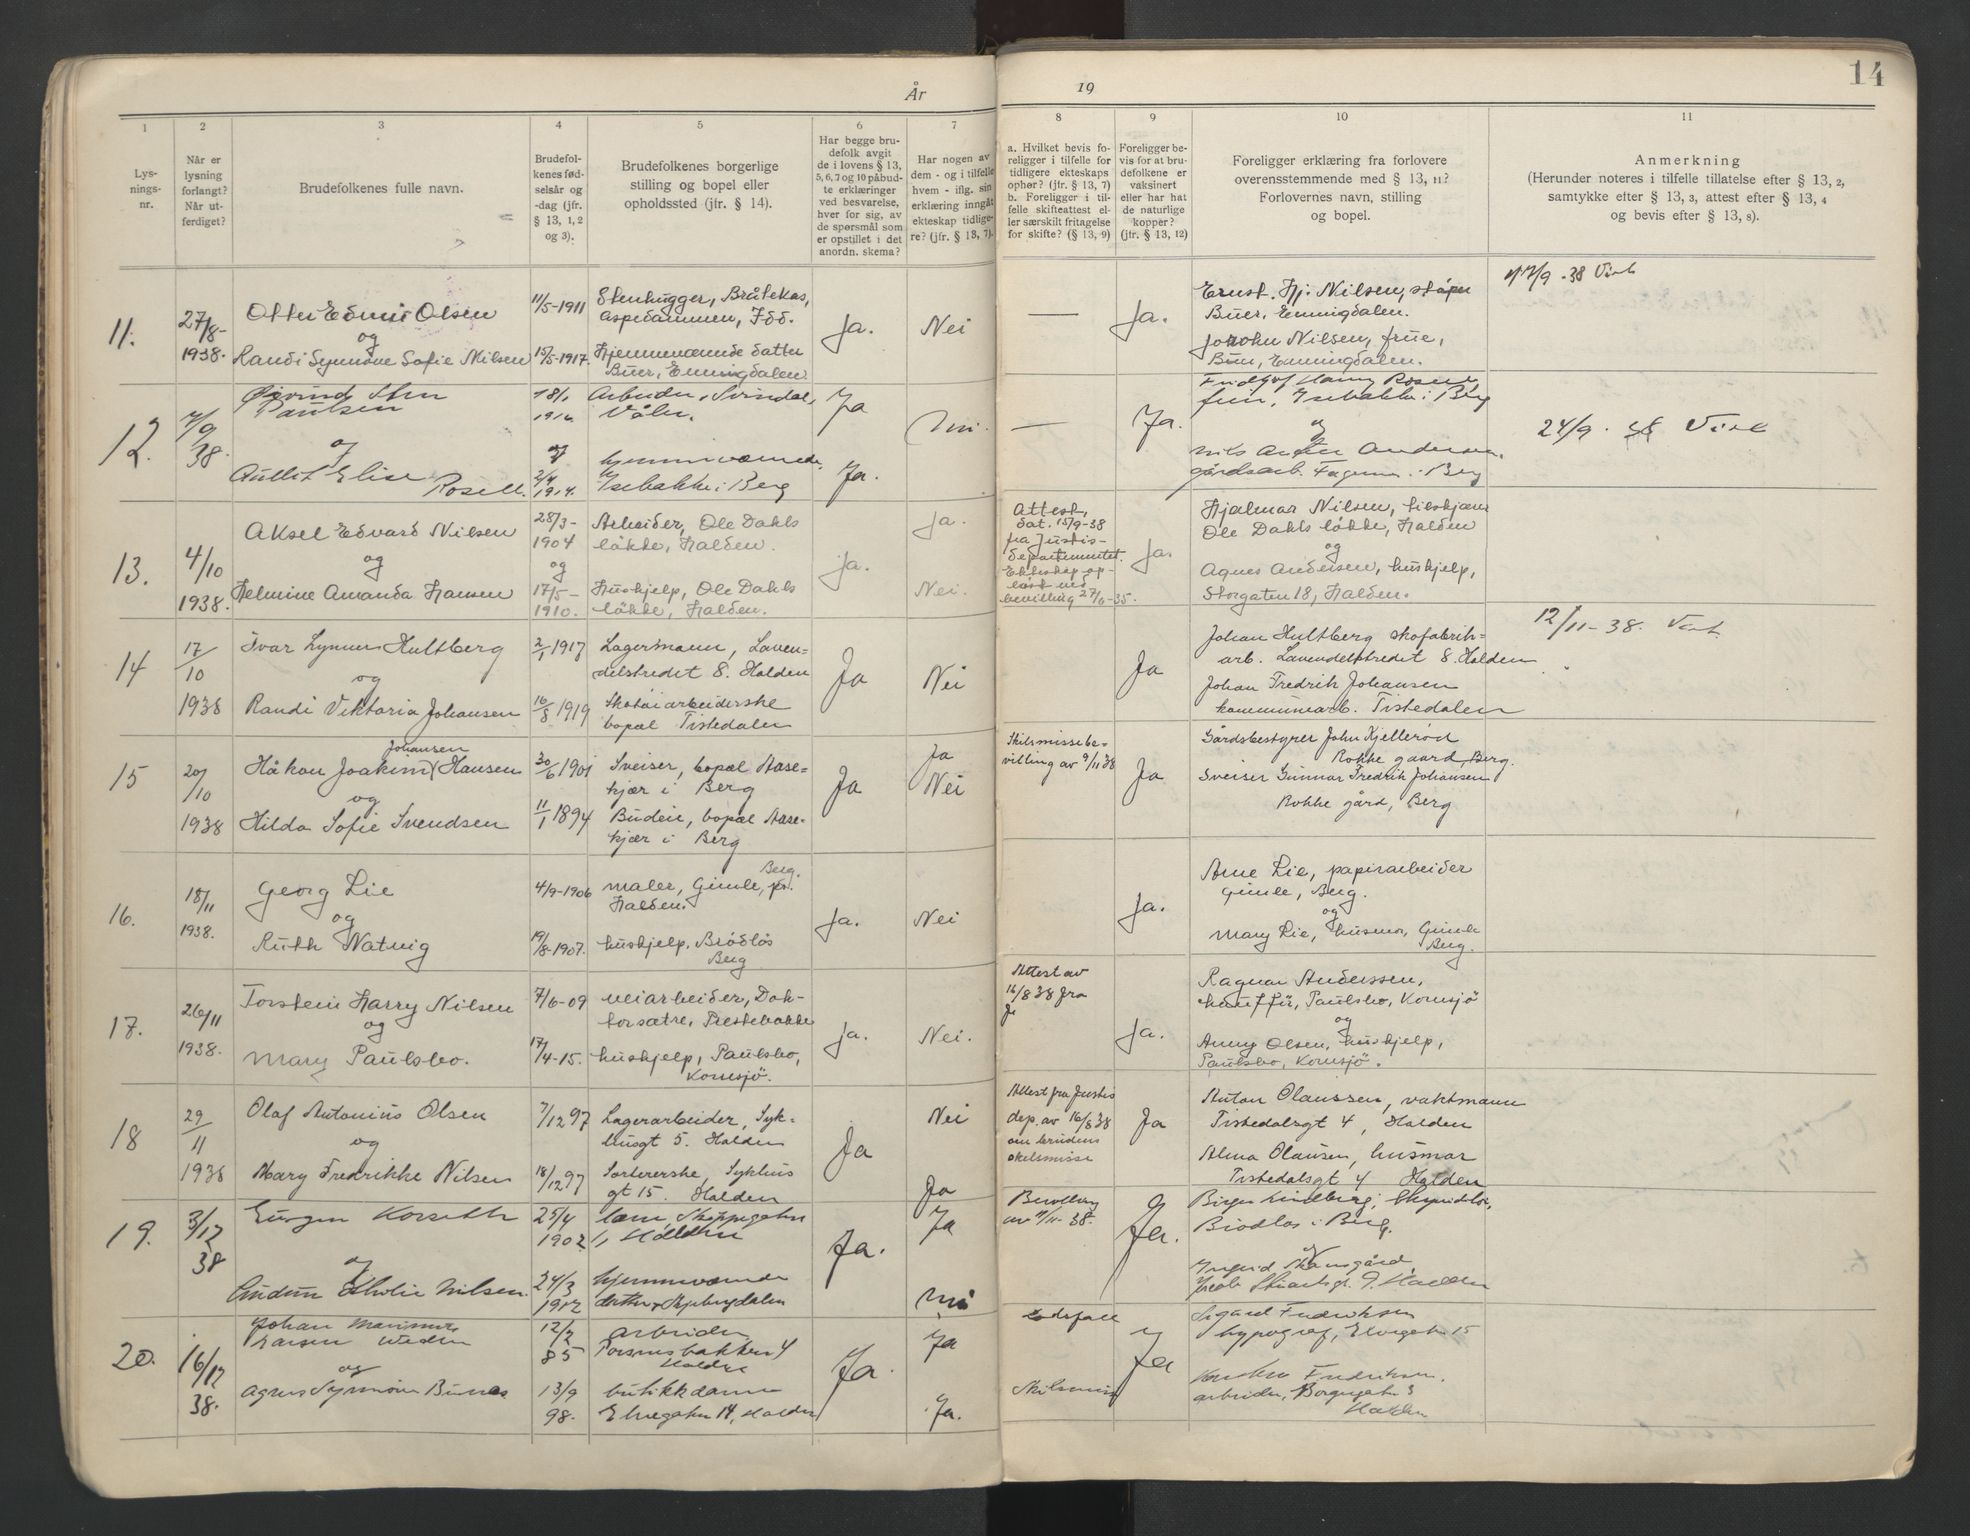 År
19
14
1
2
3
4
5
6
7
8
9
10
11
Lys-
nings-
nr.
Når er
lysning
forlangt?
Når ut-
ferdiget?
Brudefolkenes fulle navn.
Brudefol-
kenes fød-
selsår og
-dag (jfr.
§ 13, 1, 2
og 3).
Brudefolkenes borgerlige
stilling og bopel eller
opholdssted (jfr. § 14).
Har begge bru-
defolk avgit
de i lovens § 13,
5, 6, 7 og 10 påbud-
te erklæringer
ved besvarelse,
hver for sig, av
de spørsmål som
er opstillet i det
anordn. skema?
Har nogen av
dem - og i tilfelle
hvem - iflg. sin
erklæring inngått
ekteskap tidlige-
re? (jfr. § 13, 7).
a. Hvilket bevis fo-
religger i tilfelle for
tidligere ekteskaps
ophør? (jfr. § 13, 7)
b. Foreligger i til-
felle skifteattest el-
ler særskilt fritagelse
for skifte? (§ 13, 9)
Foreligger be-
vis for at bru-
defolkene er
vaksinert
eller har hat
de naturlige
kopper?
(jfr. § 13, 12)
Foreligger erklæring fra forlovere
overensstemmende med § 13, 11?
Forlovernes navn, stilling
og bopel.
Anmerkning
(Herunder noteres i tilfelle tillatelse efter § 13, 2,
samtykke efter § 13, 3, attest efter § 13, 4
og bevis efter § 13, 8).
11.
27/8-
1938.
Otter Edmir Olsen
og
Randi Synnöve Sofie Nilsen
11/5-1911
15/5-1917.
Stenhugger, Bråtekas,
Aspedammen, Idd.
Hjemmeværende datter
Buer, Enningdalen.
Ja.
Nei
—
Ja.
Ernst. Hj. Nilsen,
Buer, Enningdalen.
Nilsen, frue,
Buer, Enningdalen.
17/9 - 38
12.
7/9
38.
Øivind
Paulsen
og
Elise
Rosell.
18/1
1916
og
2/4
1914.
Arbeider, Svindal,
Våler.
hjemmeværende,
Isebakke i Berg
Ja
Ja.
Nei.
—
Ja.
Isebakke i Berg
og
Nils Andersen,
gårdsarb. i Berg
24/9 . 38
13.
4/10
1938.
Aksel Edvard Nilsen
og
Helmine Amanda Hansen
28/3-
1904
og
17/5-
1910.
Arbeider, Ole Dahls
løkke, Halden.
Hushjelp, Ole Dahls
løkke, Halden.
Ja.
Ja.
Nei.
Attest,
dat. 15/9-38
fra Justis-
departementet.
Ekteskap op-
løst ved
bevilling 27/6-35.
Ja.
Hjalmar Nilsen,
Ole Dahls løkke, Halden
og
Agnes Andersen, hushjelp,
Storgaten 18, Halden.
14
17/10
1938
Ivar Hultberg
og
Randi Viktoria Johansen
2/1 1917
16/8 1919
Lagermann, Laven-
delstredet 8. Halden
Skotøiarbeiderske
bopæl Tistedalen
Ja
Nei
Ja
Johan Hultberg skofabrik-
arb. Lavendelstredet 8. Halden
Johan Fredrik Johansen
kommunearb. Tistedalen
12/11 - 38.
15
20/10
1938
Johansen
Håkon Joakim Hansen
og
Hilda Sofie Svendsen
30/6 1901
11/1 1894
Sveiser, bopæl Aase-
kjær i Berg
Budeie, bopæl Aase-
kjær i Berg
Ja
Ja
Nei
Skilsmissebe-
villing av 9/11 38
Ja
Gårdsbestyrer John Kjellerød
Rokke gaard, Berg.
Sveiser Gunnar Fredrik Johansen
Rokke gård, Berg
16.
18/11
1938.
Georg Lie
og
Ruth Natvig
4/9-1906
19/8-1907.
Berg.
maler, Gimle, pr.
Halden.
hushjelp, Brödlös
Berg
Ja.
Nei
Ja.
Arne Lie, papirarbeider
Gimle, Berg.
og
Mary Lie, husmor, Gimle
Berg.
17.
26/11
1938.
Torstein Harry Nilsen
og
Mary Paulsbo.
7/6-09
17/4-15.
veiarbeider, Dok-
torsætre, Prestebakke
hushjelp, Paulsbo,
Kornsjö.
Ja.
Nei.
Attest av
16/8 38 fra
Ja.
Ragnar Anderssen,
Paulsbo, Kornsjö
og
Anny Olsen, hushjelp,
Paulsbo, Kornsjö.
18
29/11
1938
Olaf Antonius Olsen
og
Mary Fredrikke Nilsen
7/12 97
18/12 97
Lagerarbeider, Syk-
husgt 5. Halden
Sorterske, Sykhus
gt 15. Halden
Ja
Nei
Ja
Attest fra Justis
dep. av 16/8 38
om brudens
skilsmisse
Ja
Anton Olaussen, vaktmann
Tistedalsgt 4, Halden
Alma Olausen, husmor
Tistedalsgt 4 Halden
19.
3/12
38
Korseth
og
Nilsen.
25/4
1902
24/3
1912
Halden
hjemmeværende
datter,
Ja.
Ja
Nei
Bevilling
av 11-38.
Ja.
Birger Lindberg,
Brödlös i Berg.
og
Ingrid
Halden
20.
16/12
38.
Johan Marinius
Larsen
og
Agnes Synnöve
12/2
85
13/9
98.
arbeider
4
Halden
butikkdame
Elvegaten 14, Halden
Ja.
Ja
Ja.
Dödsfall
Skilsmisse
Ja
Sigurd Fredriksen
typograf, Elvegaten 15
Fredriksen.
arbeider, Borgergaten 3
Halden